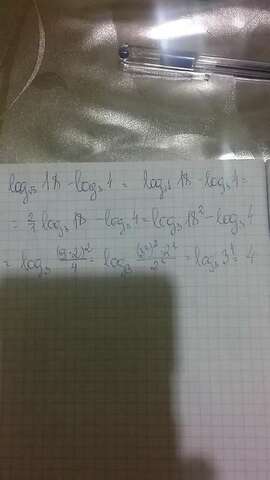 log√3 18 - log3 4 = log3^1/2 18 - log3 4 =
= 2/1 log3 18 - log3 4 = log3 18^2 - log3 4
= log3 (9·2)^2/4 = log3 (3^2)^2·2^2/2^2 = log3 3^4 = 4